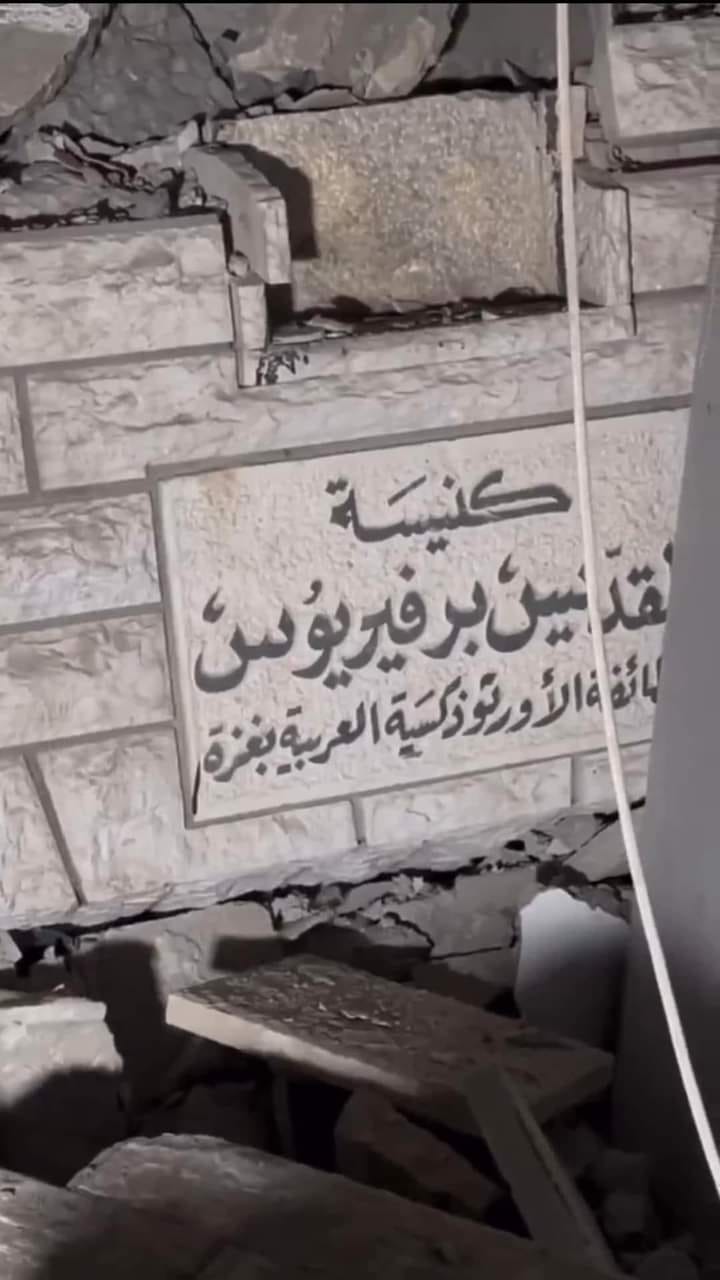 كنيسَة
القدّيس برفيريوُس
طائفة الأورثوذكسَية العربية بغزة